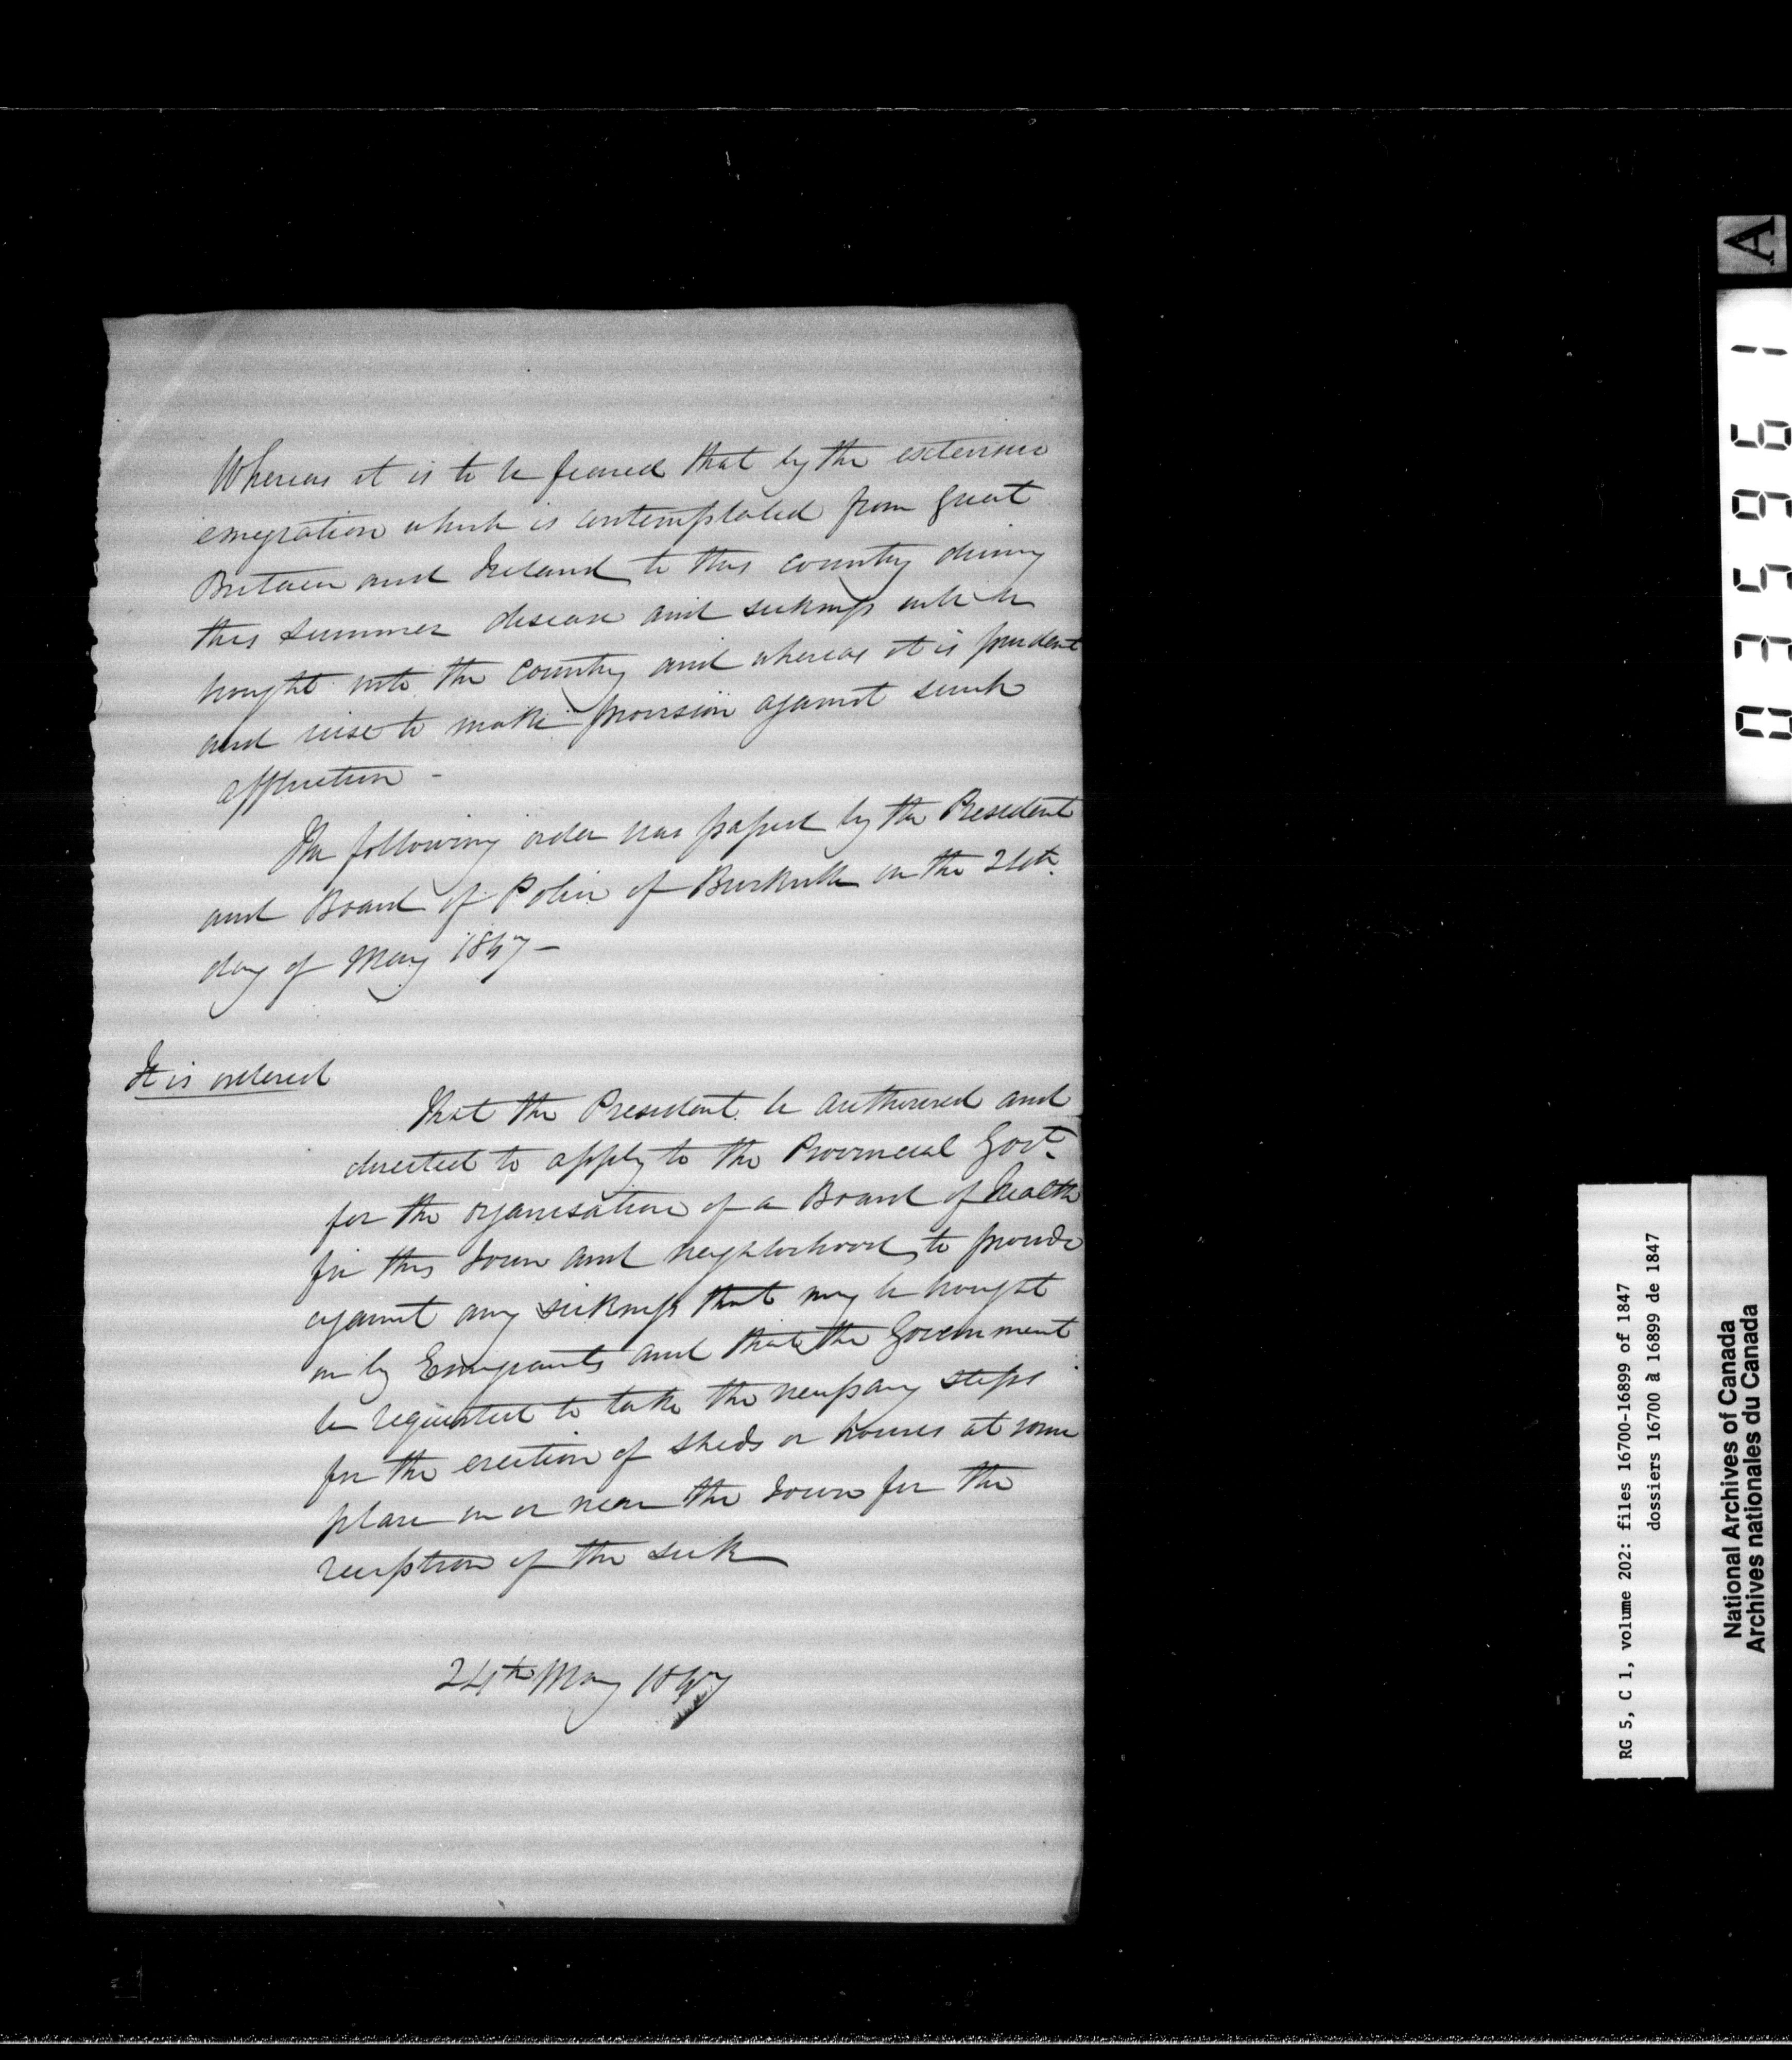 Whereas it is to be feared that by the extensive
emigration which is contemplated from Great
Britain and Ireland to this country during
this summer disease and sickness will be
brought into the country and whereas it is prudent
and wise to make provision against such
affliction -
The following order was passed by the President
and Board of Police of Brockville on the 24th
day of May 1847 -
It is ordered
That the President be authorised and
directed to apply to the Provincial Govt.
for the organisation of a Board of Health
for this Town and neighborhood to provide
against any sickness that may be brought
in by Emigrants and that the Government
be requested to take the necessary steps
for the erection of sheds or houses at some
place in or near the Town for the
reception of the sick
24th May 1847
A
035961
RG 5, C 1, volume 202: files 16700-16899 of 1847
dossiers 16700 à 16899 de 1847
National Archives of Canada
Archives nationales du Canada